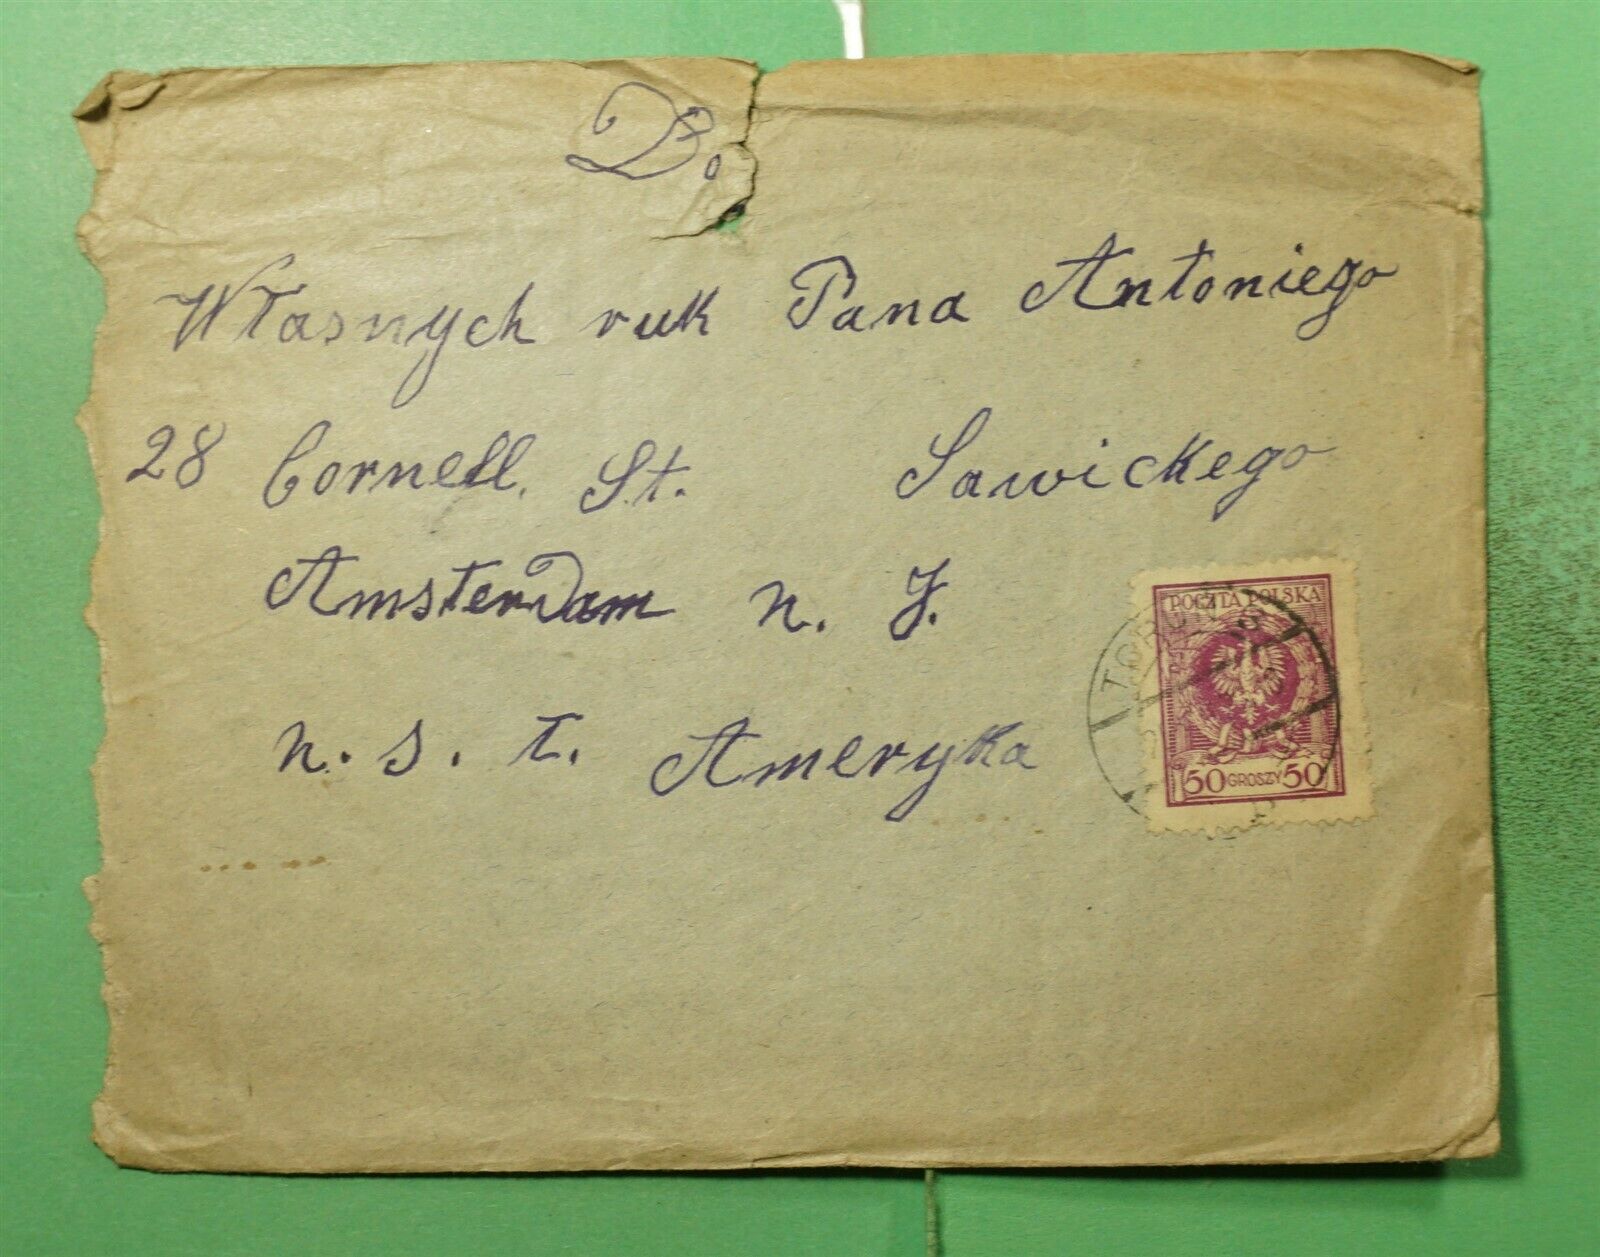 Do
Własnych ruk Pana Antoniego
28 Cornell. St. Sawickego
Amsterdam n. J.
n. s. t. Ameryka
POCZTA POLSKA
50 GROSZY 50
TORUŃ